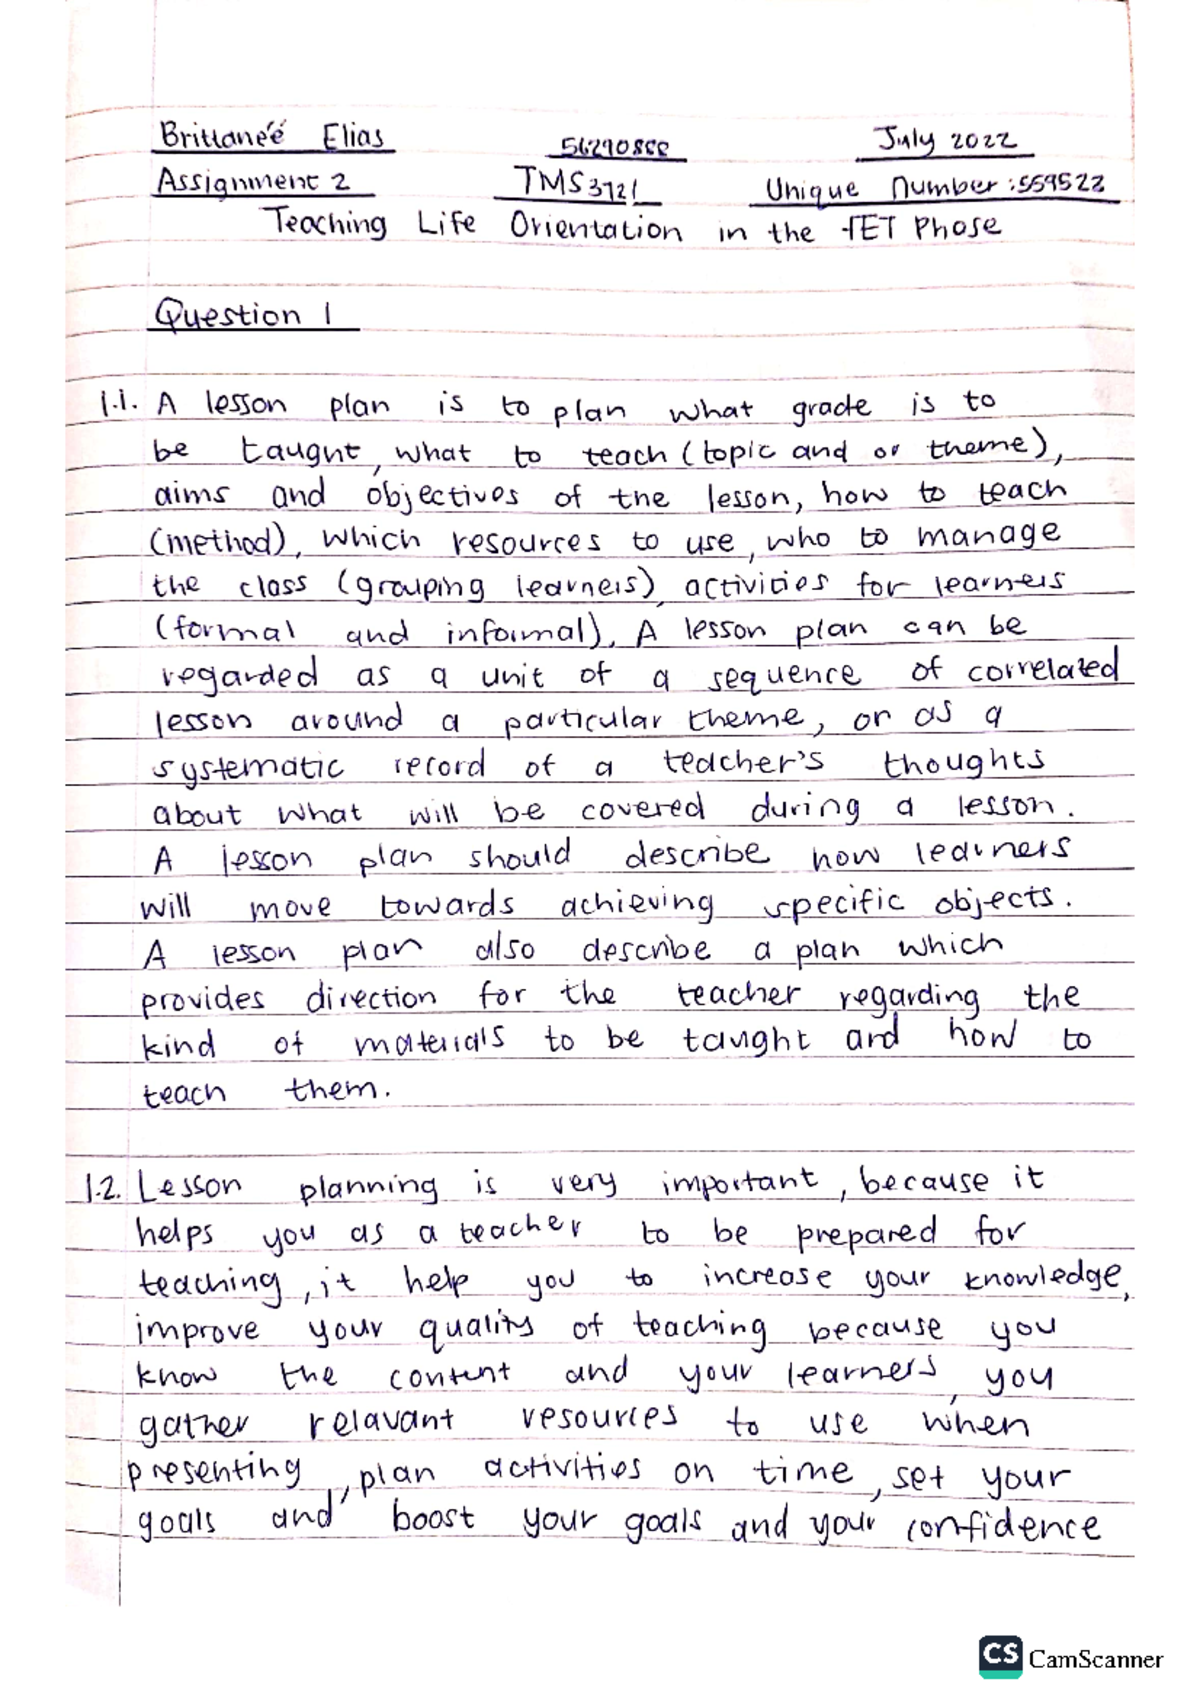 Brittaneé Elias July 2022
Assignment 2 TMS3721 Unique Number:559522
Teaching Life Orientation in the FET Phase
Question 1
1.1. A lesson plan is to plan what grade is to
be taught, what to teach (topic and or theme),
aims and objectives of the lesson, how to teach
(method), which resources to use, who to manage
the class (grouping learners), activities for learners
(formal and informal). A lesson plan can be
regarded as a unit of a sequence of correlated
lesson around a particular theme, or as a
systematic record of a teacher's thoughts
about what will be covered during a lesson.
A lesson plan should describe how learners
will move towards achieving specific objects.
A lesson plan also describe a plan which
provides direction for the teacher regarding the
kind of materials to be taught and how to
teach them.
1.2. Lesson planning is very important, because it
helps you as a teacher to be prepared for
teaching, it help you to increase your knowledge,
improve your quality of teaching because you
know the content and your learners, you
gather relavant resources to use when
presenting, plan activities on time, set your
goals and boost your goals and your confidence
CS CamScanner